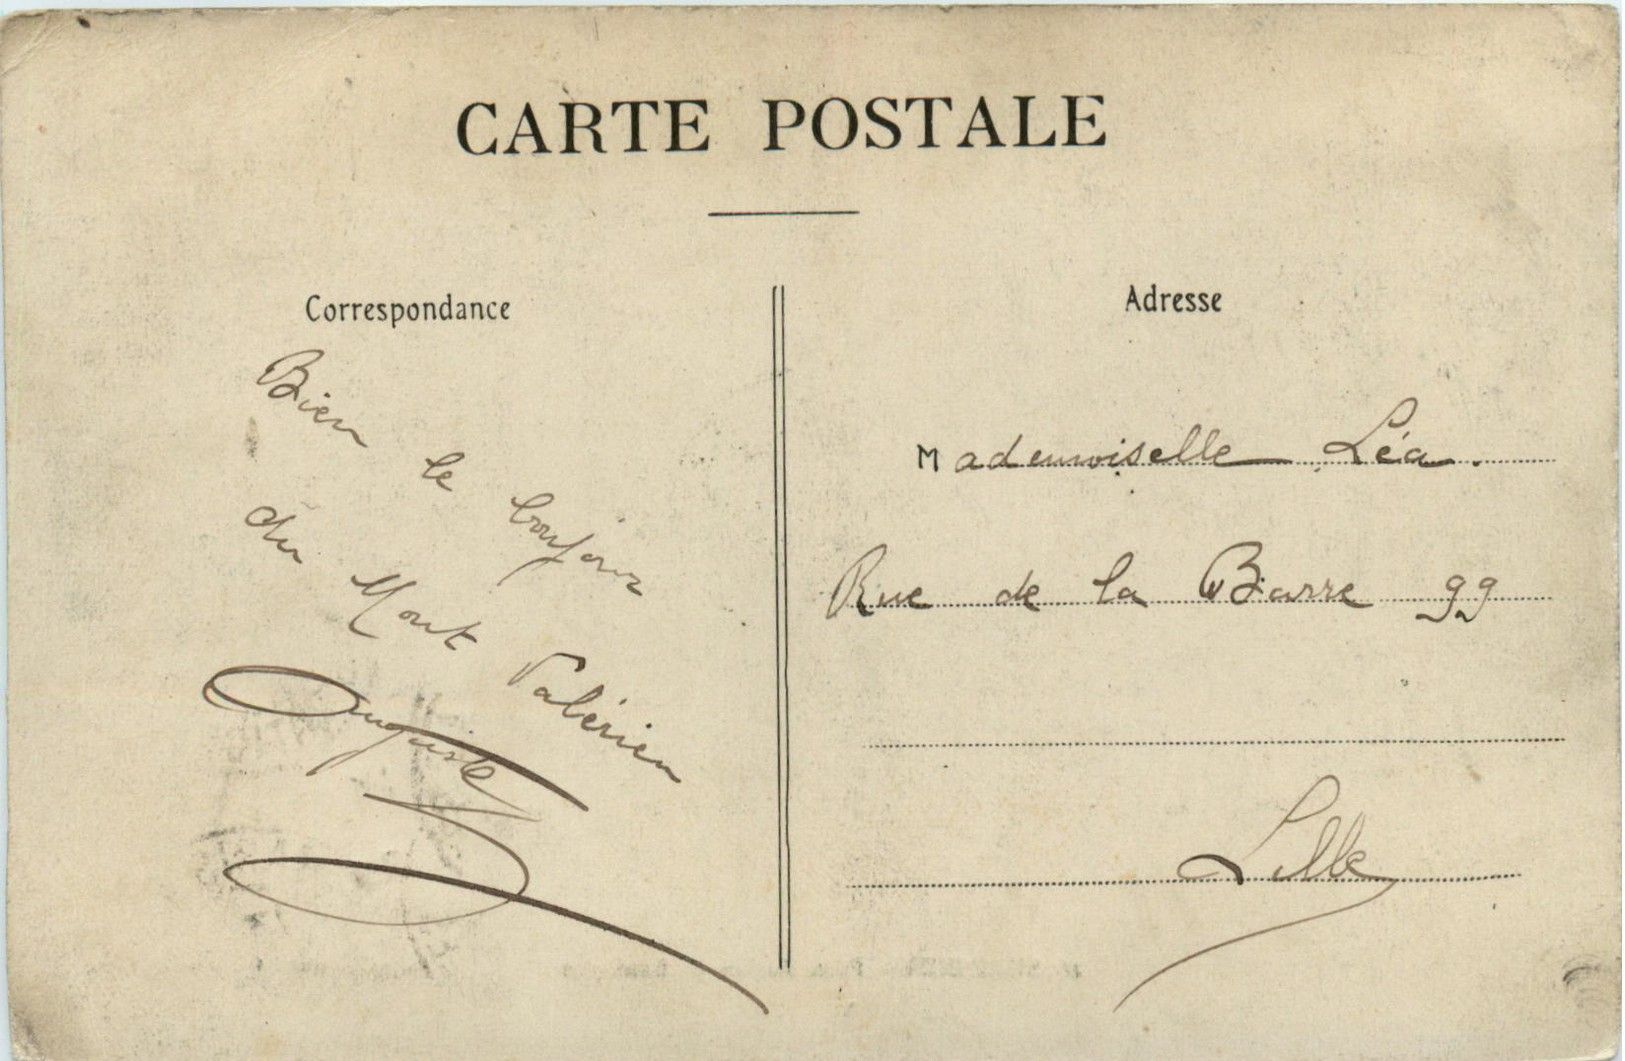 CARTE POSTALE
Correspondance
Bien le bonjour
du Mont Valérien
Auguste
Adresse
Mademoiselle Léa.
Rue de la Barre 99
Lille